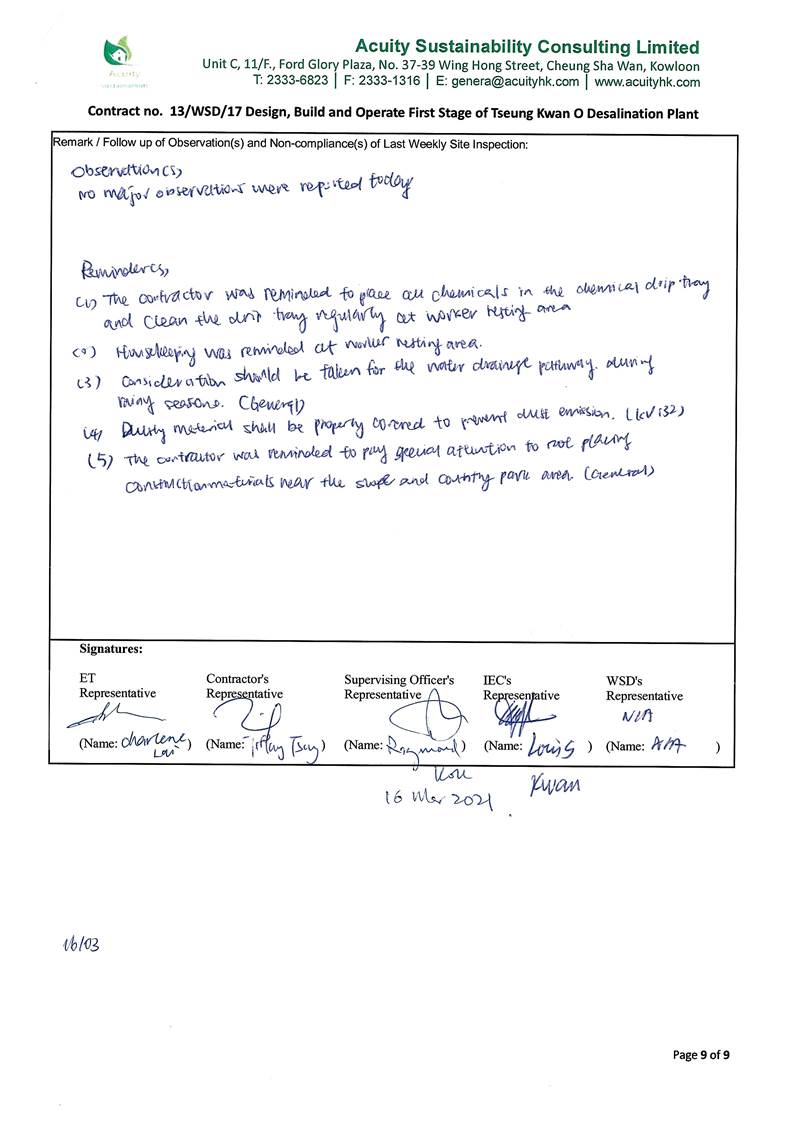 Acuity
Acuity Sustainability Consulting Limited
Unit C, 11/F., Ford Glory Plaza, No. 37-39 Wing Hong Street, Cheung Sha Wan, Kowloon
T: 2333-6823 | F: 2333-1316 | E: genera@acuityhk.com | www.acuityhk.com
Contract no. 13/WSD/17 Design, Build and Operate First Stage of Tseung Kwan O Desalination Plant
Remark / Follow up of Observation(s) and Non-compliance(s) of Last Weekly Site Inspection:
Observation(s)
No major observations were reported today
Reminder(s)
(1) The contractor was reminded to place all chemicals in the chemical drip tray
and clean the drip tray regularly at worker resting area
(2) Housekeeping was reminded at worker resting area.
(3) Consideration should be taken for the water drainage pathway during
rainy seasons. (General)
(4) Dusty material shall be properly covered to prevent dust emission.
(5) The contractor was reminded to pay special attention to not placing
construction materials near the slope and country park area. (General)
Signatures:
ET Contractor's Supervising Officer's IEC's WSD's
Representative Representative Representative Representative Representative
N/A
(Name: Charlene ) (Name: Tsoy ) (Name: Raymond ) (Name: Louis ) (Name: N/A )
Kwan
16 Mar 2021
16/03
Page 9 of 9